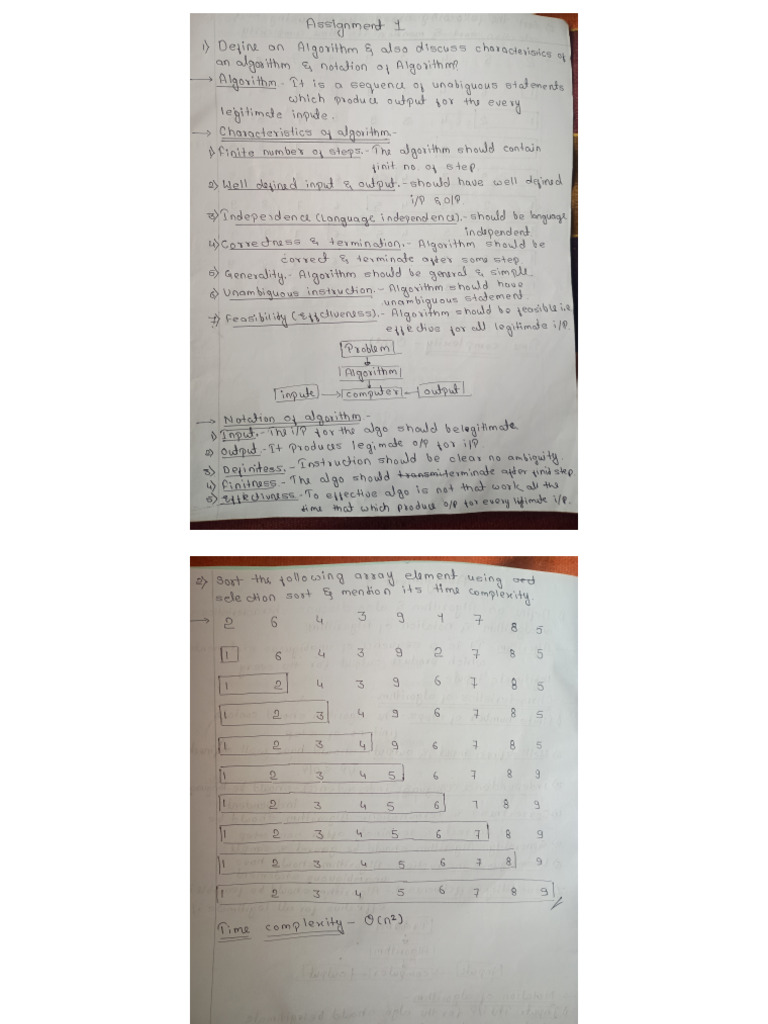 Assignment 1
1) Define an Algorithm & also discuss characteristics of
an algorithm & notation of Algorithm?
→ Algorithm - It is a sequence of unabiguous statements
which produce output for the every
legitimate inpute.
→ Characteristics of algorithm.-
1) finite number of steps.- The algorithm should contain
finit no. of step
2) Well defined input & output.- should have well defined
i/p & o/p.
3) Independence (Language independence).- should be language
independent
4) Correctness & termination.- Algorithm should be
correct & terminate after some step.
5) Generality.- Algorithm should be general & simple.
6) Unambiguous instruction.- Algorithm should have
unambiguous statement
7) Feasibility (Effctiveness).- Algorithm should be feasible i.e.
effective for all legitimate i/p.
Problem
Algorithm
inpute → computer → output
→ Notation of algorithm -
1) Input.- The i/p for the algo should be legitimate.
2) Output - It Produces legimate o/p for i/p.
3) Definitess.- Instruction should be clear no ambiguity.
4) Finitness - The algo should transmi terminate after finit step
5) Effectivness - To effective algo is not that work all the
time that which produce o/p for every i/p.
2) Sort the following array element using
selection sort & mention its time complexity.
→ 2 6 4 3 9 1 7 8 5
1 6 4 3 9 2 7 8 5
1 2 4 3 9 6 7 8 5
1 2 3 4 9 6 7 8 5
1 2 3 4 9 6 7 8 5
1 2 3 4 5 6 7 8 9
1 2 3 4 5 6 7 8 9
1 2 3 4 5 6 7 8 9
1 2 3 4 5 6 7 8 9
1 2 3 4 5 6 7 8 9
Time complexity - O(n²)